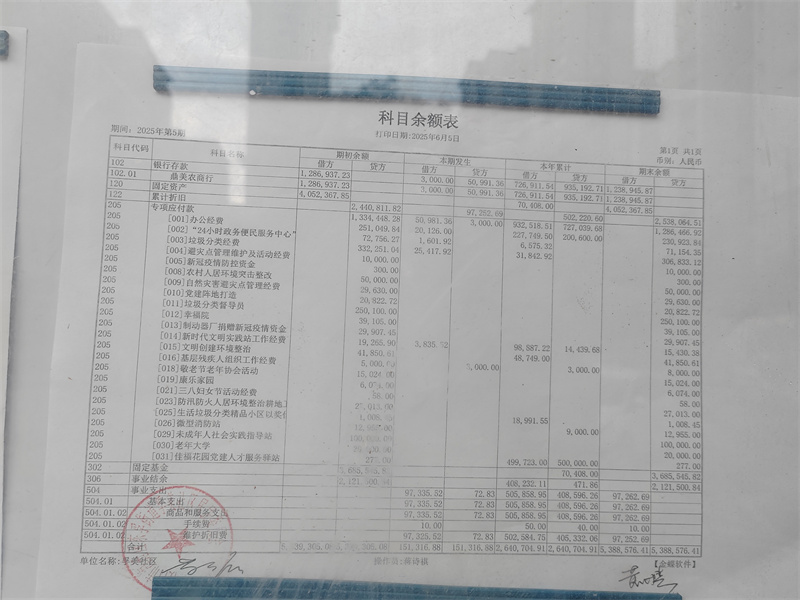 科目余额表
打印日期:2025年6月5日
期间: 2025年第5期
第1页 共1页
币别: 人民币
科目代码 科目名称 期初余额 本期发生 本年累计 期末余额
借方 贷方 借方 贷方 借方 贷方 借方 贷方
102 银行存款 1,286,937.23 3,000.00 50,991.36 726,911.54 935,192.71 1,238,945.87
102.01 鼎美农商行 1,286,937.23 3,000.00 50,991.36 726,911.54 935,192.71 1,238,945.87
120 固定资产 4,052,367.85 70,408.00 4,052,367.85
122 累计折旧 2,440,811.82 97,252.69 502,220.60 2,538,064.51
205 专项应付款 1,334,448.28 50,981.36 3,000.00 932,518.51 727,039.68 1,286,466.92
205 [001]办公经费 251,049.84 20,126.00 227,749.50 200,600.00 230,923.84
205 [002]“24小时政务便民服务中心” 72,756.27 1,601.92 6,575.32 71,154.35
205 [003]垃圾分类经费 332,251.04 25,417.92 31,842.92 306,833.12
205 [004]避灾点管理维护及活动经费 10,000.00 10,000.00
205 [005]新冠疫情防控资金 300.00 300.00
205 [008]农村人居环境突击整改 50,000.00 50,000.00
205 [009]自然灾害避灾点管理经费 29,630.00 29,630.00
205 [010]党建阵地打造 20,822.72 20,822.72
205 [011]垃圾分类督导员 250,100.00 250,100.00
205 [012]幸福院 39,105.00 39,105.00
205 [013]制动器厂捐赠新冠疫情资金 29,907.45 29,907.45
205 [014]新时代文明实践站工作经费 19,265.90 3,835.52 98,887.22 14,439.68 15,430.38
205 [015]文明创建环境整治 41,850.61 48,749.00 41,850.61
205 [016]基层残疾人组织工作经费 5,000.00 3,000.00 3,000.00 8,000.00
205 [018]敬老节老年协会活动 15,024.00 15,024.00
205 [019]康乐家园 6,074.00 6,074.00
205 [021]三八妇女节活动经费 58.00 58.00
205 [023]防汛防火人居环境整治耕地 27,013.00 27,013.00
205 [025]生活垃圾分类精品小区以奖 1,008.45 18,991.55 1,008.45
205 [026]微型消防站 12,955.00 9,000.00 12,955.00
205 [029]未成年人社会实践指导站 100,000.00 100,000.00
205 [030]老年大学 20,000.00 20,000.00
205 [031]佳福花园党建人才服务驿站 277.00 499,723.00 500,000.00 277.00
302 固定基金 3,685,545.82 70,408.00 3,685,545.82
306 事业结余 2,121,500.84 408,232.11 471.86 2,121,500.84
504 事业支出 97,335.52 72.83 505,858.95 408,596.26 97,262.69
504.01 基本支出 97,335.52 72.83 505,858.95 408,596.26 97,262.69
504.01.02 商品和服务支出 97,335.52 72.83 505,858.95 408,596.26 97,262.69
504.01.02 手续费 10.00 50.00 40.00 10.00
504.01.02 维护折旧费 97,325.52 72.83 502,584.75 405,332.06 97,252.69
合计 151,316.88 151,316.88 2,640,704.91 2,640,704.91 5,388,576.41 5,388,576.41
单位名称: 社区
操作者:
【金蝶软件】